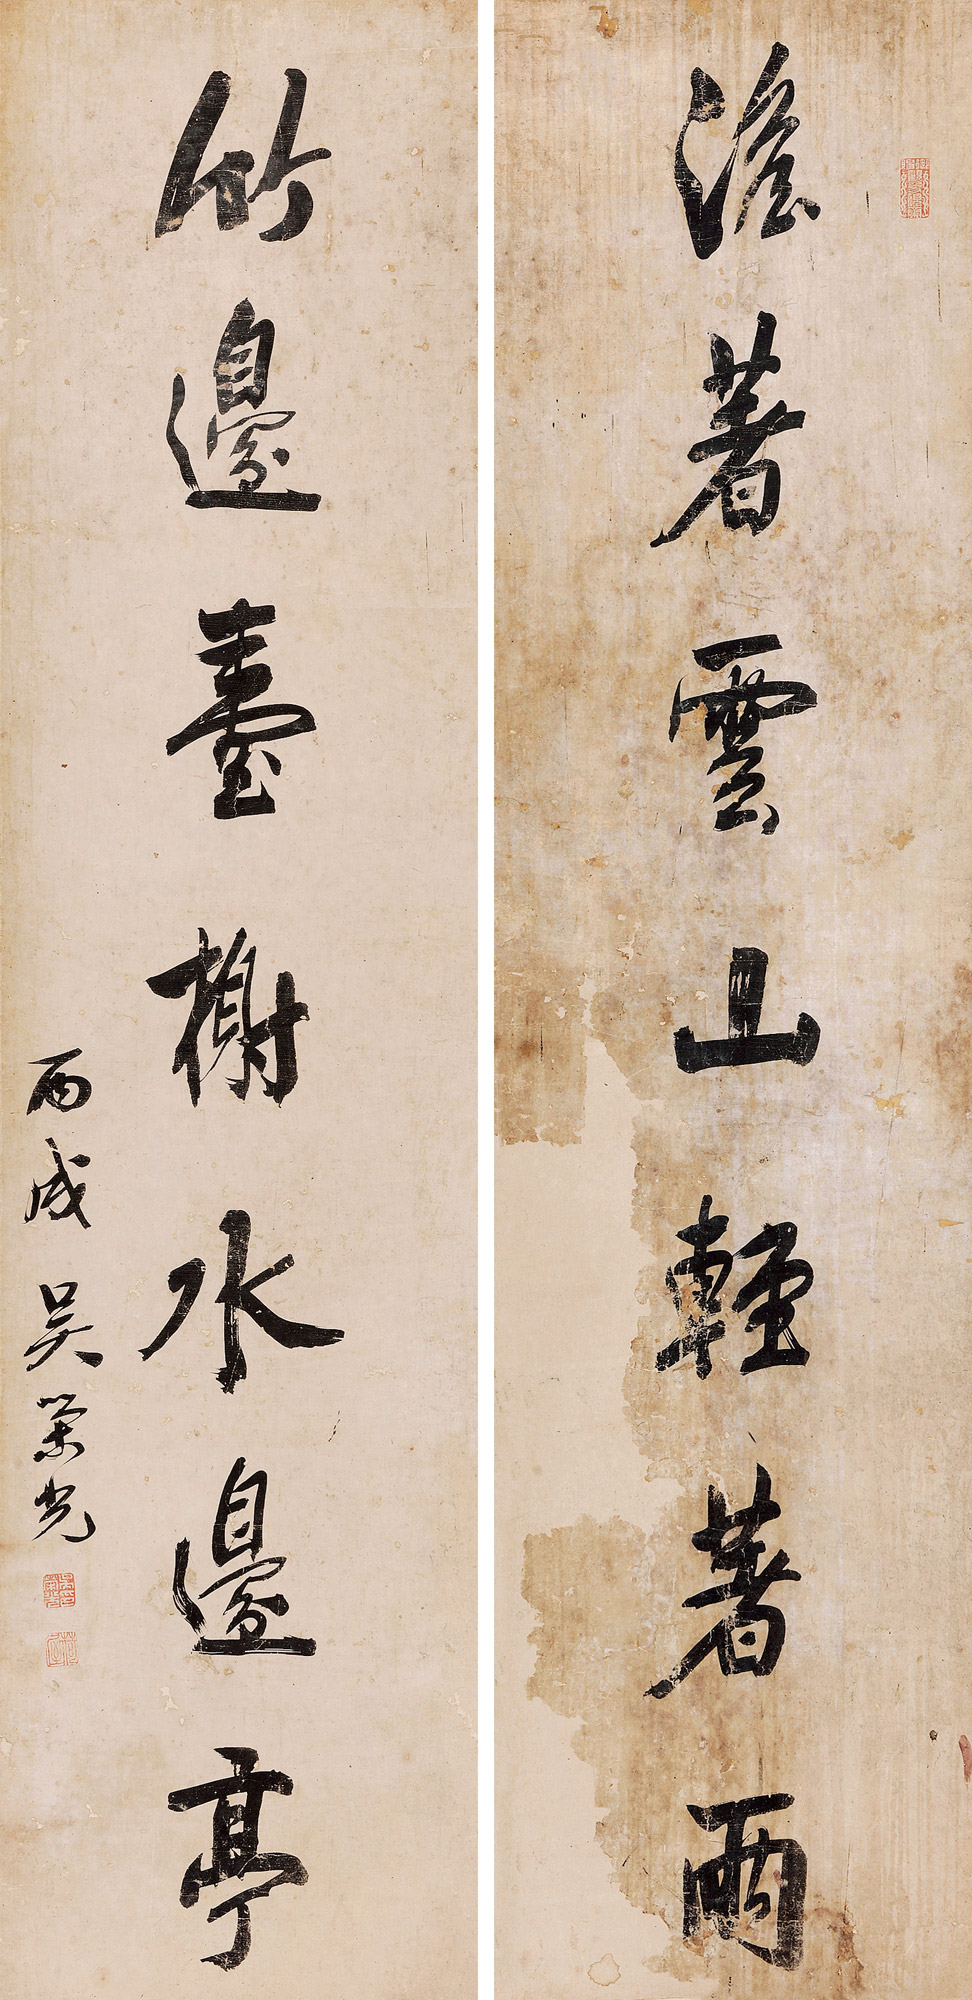 澹著雲山輕著雨
竹邊臺榭水邊亭
丙戌 吳榮光